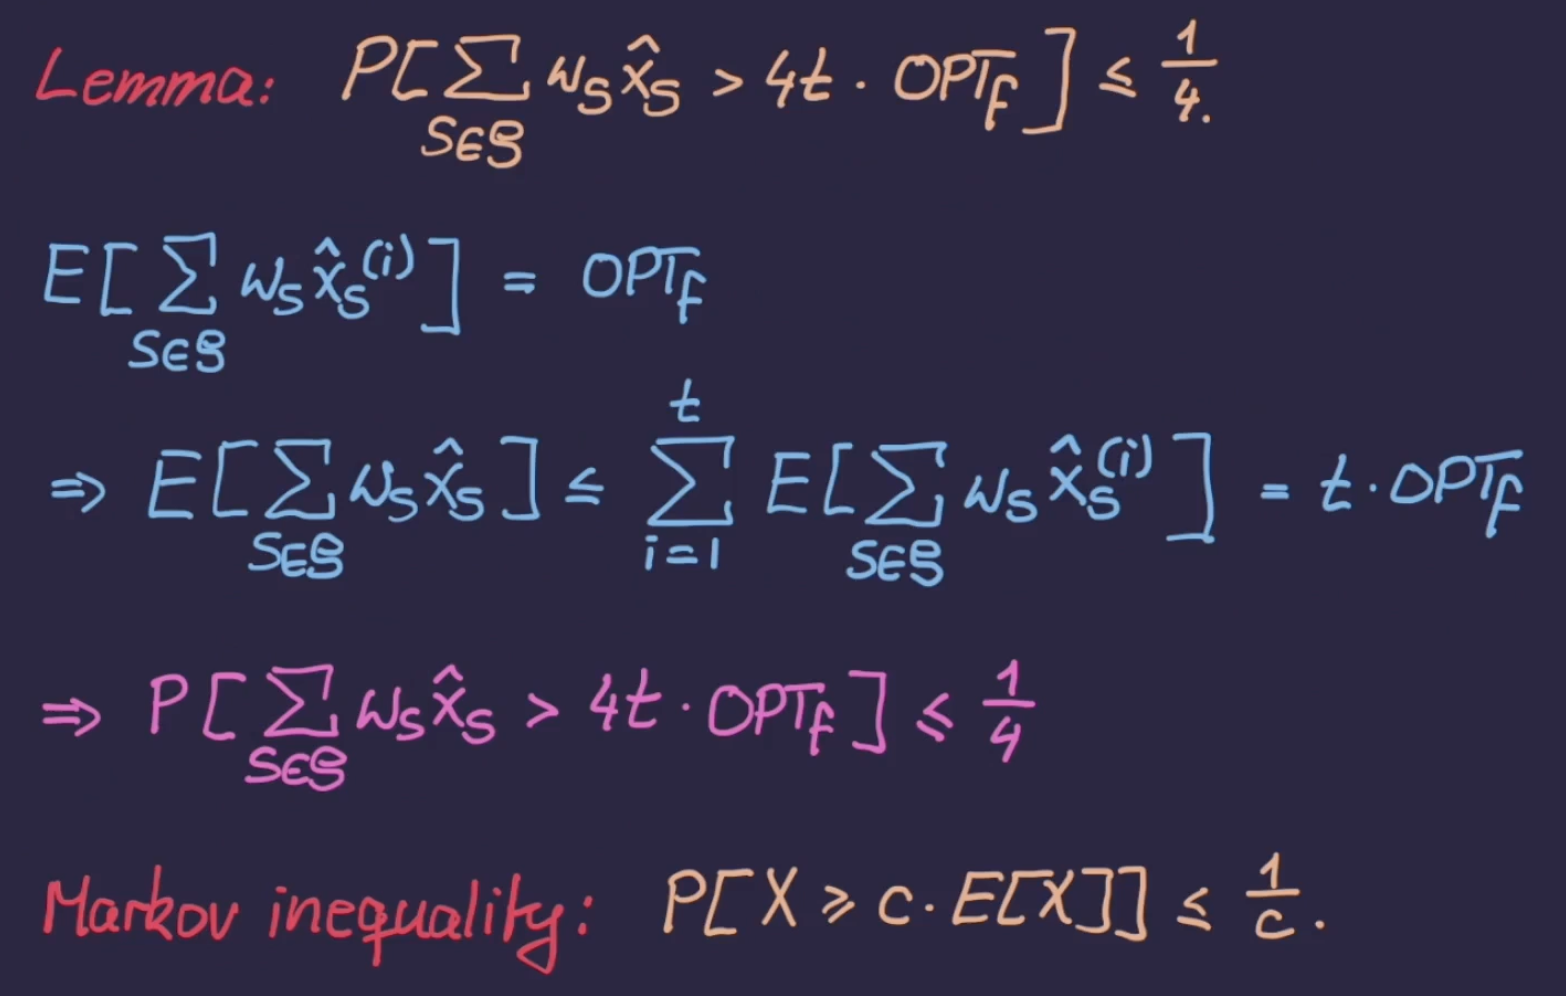 Lemma: P[∑_{S∈𝒮} w_S x̂_S > 4t · OPT_f] ≤ 1/4.
E[∑_{S∈𝒮} w_S x̂_S^{(i)}] = OPT_f
⇒ E[∑_{S∈𝒮} w_S x̂_S] ≤ ∑_{i=1}^{t} E[∑_{S∈𝒮} w_S x̂_S^{(i)}] = t · OPT_f
⇒ P[∑_{S∈𝒮} w_S x̂_S > 4t · OPT_f] ≤ 1/4
Markov inequality: P[X ≥ c · E[X]] ≤ 1/c.